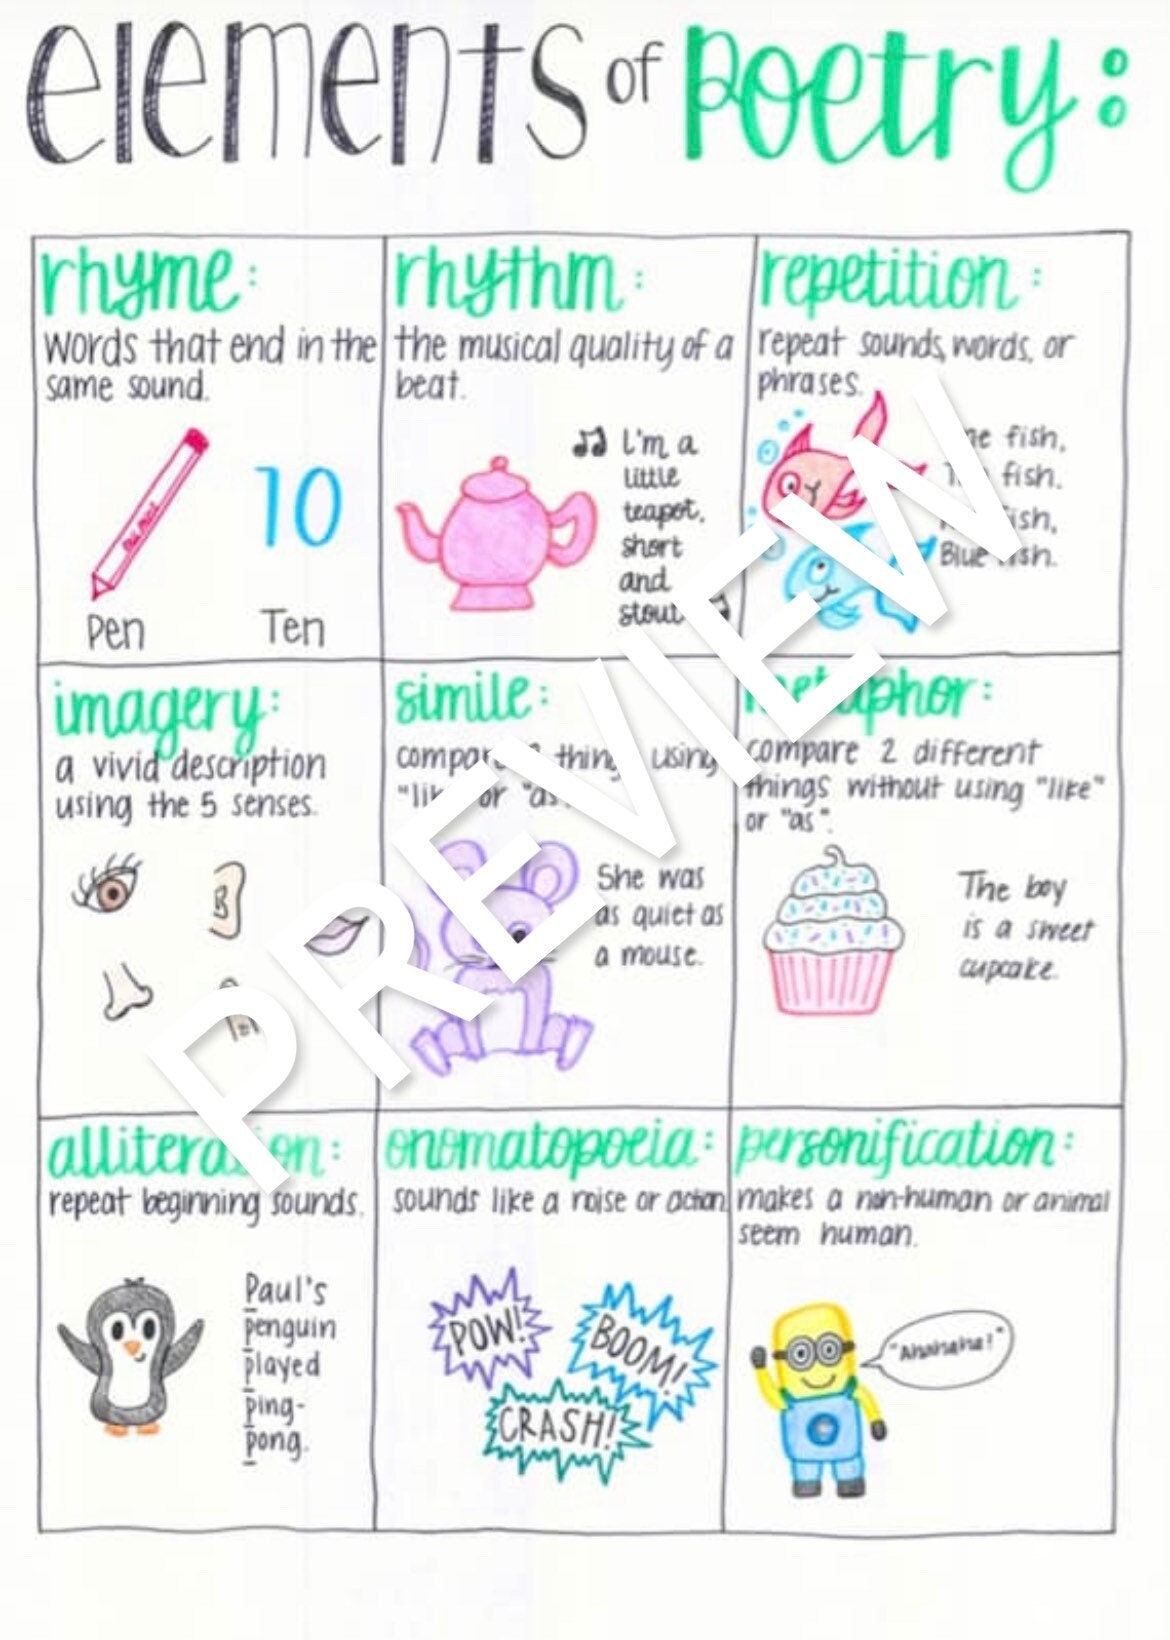 elements of poetry:
rhyme:
words that end in the
same sound.
10
Pen
Ten
rhythm:
the musical quality of a
beat.
I'm a
little
teapot,
short
and
stout
repetition:
repeat sounds, words, or
phrases.
fish,
fish.
Blue fish.
imagery:
a vivid description
using the 5 senses.
simile:
compare 2 things using
"like" or "as".
She was
as quiet as
a mouse.
metaphor:
compare 2 different
things without using "like"
or "as".
The boy
is a sweet
cupcake.
alliteration:
repeat beginning sounds.
Paul's
penguin
played
ping-
pong.
onomatopoeia:
sounds like a noise or action.
POW!
BOOM!
CRASH!
personification:
makes a non-human or animal
seem human.
"Ahahaha!"
PREVIEW